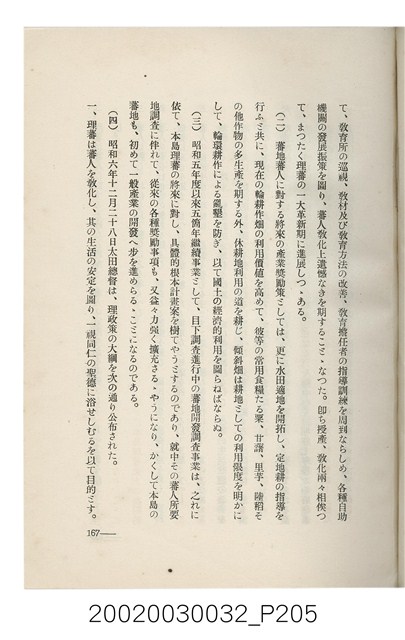 て、敎育所の巡視、敎材及び敎育方法の改善、敎育擔任者の指導訓練を周到ならしめ、各種自助
機關の發展振策を圖り、蕃人敎化上遺憾なきを期することゝなつた。卽ち授產、敎化兩々相俟つ
て、まつたく理蕃の一大革新期に進展しつゝある。
(二) 蕃地蕃人に對する將來の產業奬勵策としては、更に水田適地を開拓し、定地耕の指導を
行ふと共に、現在の輪耕作畑の利用價値を高めて、彼等の常用食糧たる粟、甘藷、里芋、陸稻そ
の他作物の多生產を期する外、休耕地利用の道を耕じ、傾斜畑は耕地としての利用限度を明かに
して、輪環耕作による亂墾を防ぎ、以て國土の經濟的利用を圖らねばならぬ。
(三) 昭和五年度以來五箇年繼續事業として、目下調査進行中の蕃地開發調査事業は、之れに
依て、本島理蕃の將來に對し、具體的根本計畫案を樹てやうとするのであり、就中その蕃人所要
地調査に伴れて、從來の各種奬勵事項も、又益々力强く擴充さるゝやうになり、かくして本島の
蕃地も、初めて一般產業の開發へ步を進めらるゝことになるのである。
(四) 昭和六年十二月二十八日太田總督は、理政策の大綱を次の通り公布された。
一、理蕃は蕃人を敎化し、其の生活の安定を圖り、一視同仁の聖德に浴せしむるを以て目的とす。
167—
20020030032_P205